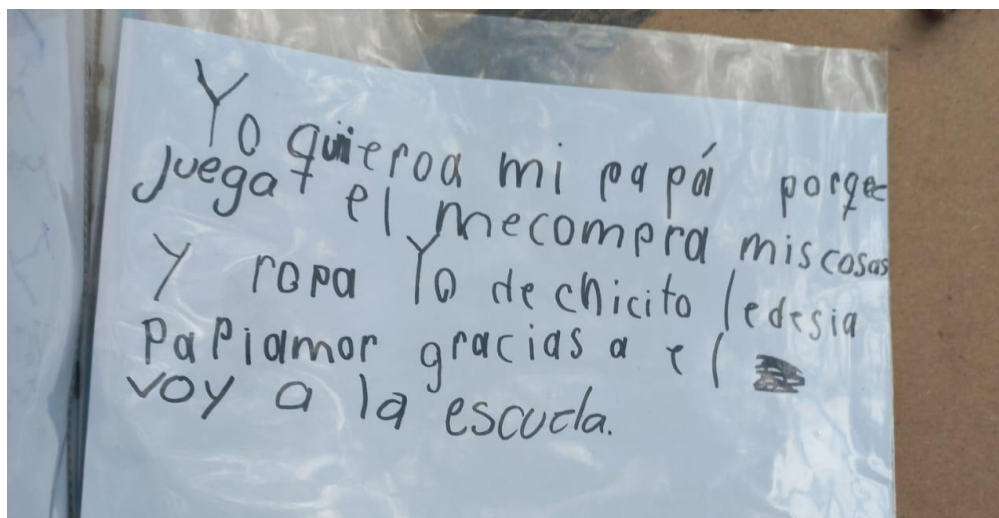 Yo quieroa mi papá porqe
juega+ el mecompra miscosas
y ropa Yo de chicito ledesia
Papiamor gracias a el
voy a la escuela.